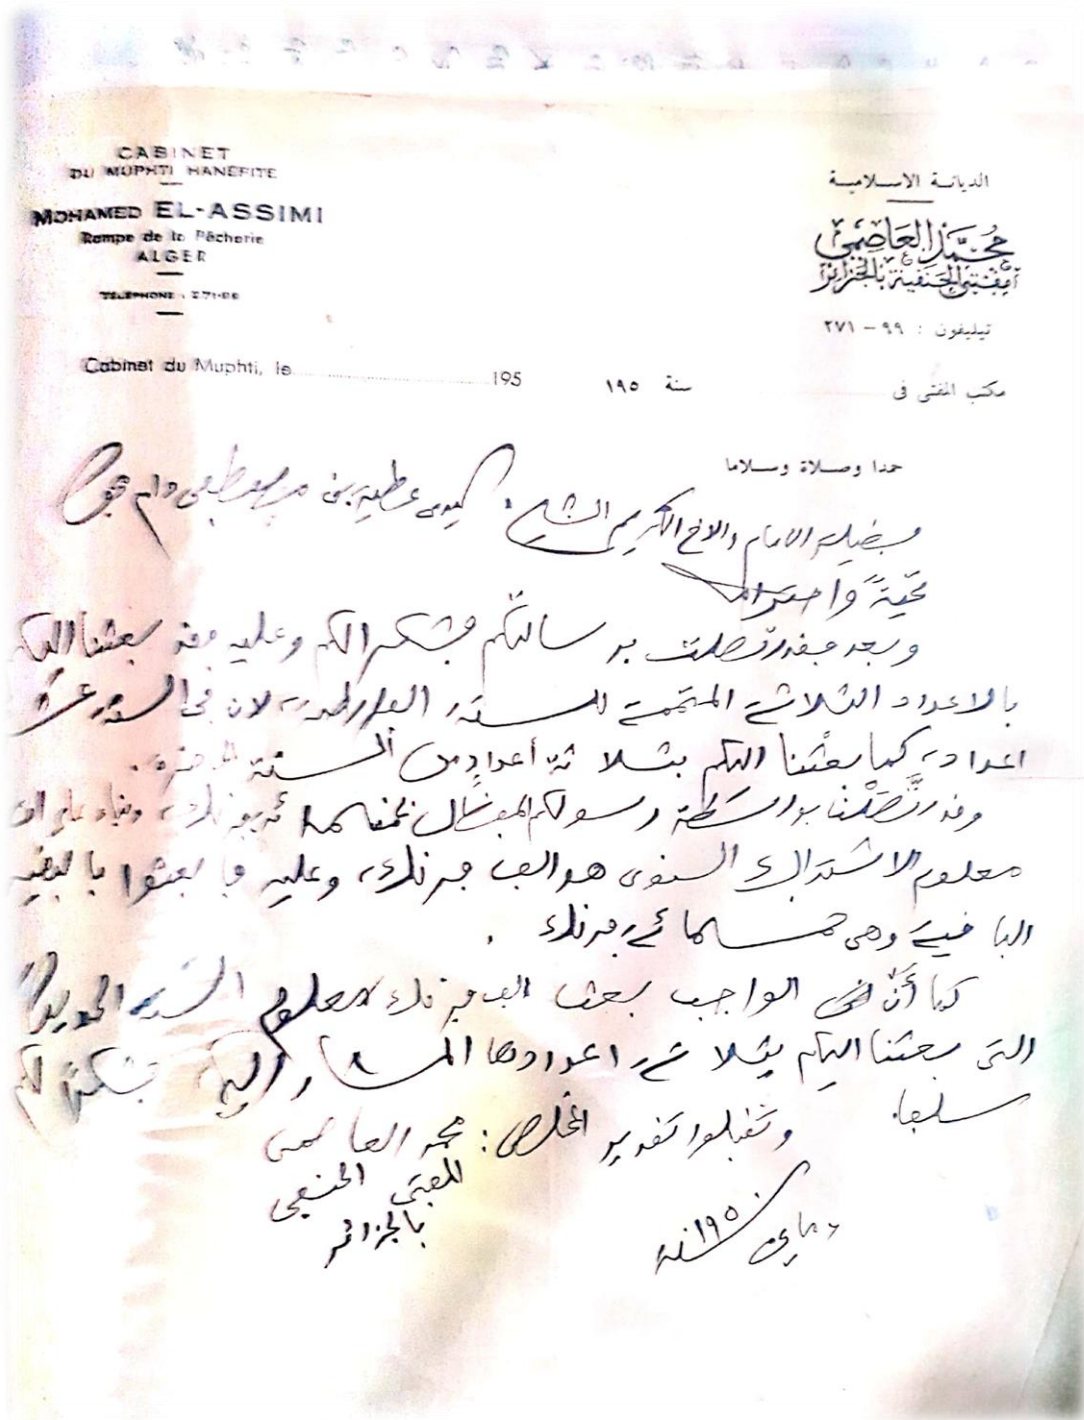 CABINET
DU MUPHTI HANEFITE
MOHAMED EL-ASSIMI
Rampe de la Pêcherie
ALGER
TELEPHONE : 271-99
Cabinet du Muphti, le 195
الديانة الاسلامية
محمد العاصمي
مفتي الحنفية بالجزائر
تيليفون : ٩٩ - ٢٧١
مكتب المفتى فى سنة ١٩٥
حمدا وصلاة وسلاما
فضيلة الامام والاخ الكريم الشيخ عطية بن مصطفى دام
تحيةً واحتراما
وبعد فقد تصلت برسالتكم فشكرا لكم وعليه فقد بعثنا اليكم
بالاعداد الثلاثة المتممة للسنة لان فى السنة عشرة
اعداد، كما بعثنا اليكم بثلاثة أعداد من السنة
وقد تَّصَلْنا بواسطة رسولكم المفضال خمسمائة فرنك، وبناء على ان
معلوم الاشتراك السنوى هو الف فرنك، وعليه فابعثوا بالبقية
الباقية وهى خمسمائة فرنك .
كما أنّ الواجب بعث الف فرنك معلوم السنة الجديدة
التى بعثنا اليكم بثلاثة اعدادها المشار اليها فشكرًا لكم
سلفا.
وتقبلوا تقدير المخلص : محمد العاصمى
المفتى الحنفى
بالجزائر
ماي سنة ١٩٥